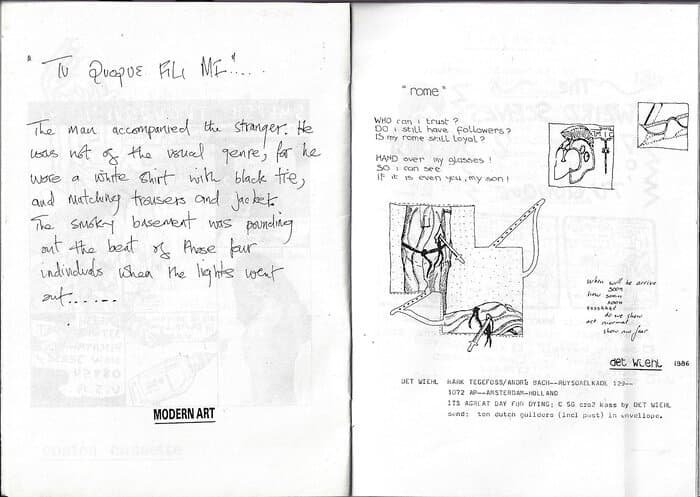 "TU QUOQUE FILI MI".....
The man accompanied the stranger. He
was not of the usual genre, for he
wore a white shirt with black tie,
and matching trousers and jacket.
The smoky basement was pounding
out the beat of those four
individuals when the lights went
out......
MODERN ART
"rome"
WHO can i trust?
DO i still have followers?
IS my rome still loyal?
HAND over my glasses!
SO i can see
IF it is even you, my son!
when will he arrive
soon
how soon
soon
do we show
act normal
show no fear
det wiehl 1986
DET WIEHL MARK TEGEFOSS/ANDRé BACH--RUYSDAELKADE 129--
1072 AP--AMSTERDAM-HOLLAND
ITS AGREAT DAY FOR DYING; C 50 cro2 kass by DET WIEHL
send: ten dutch guilders (incl post) in envelope.